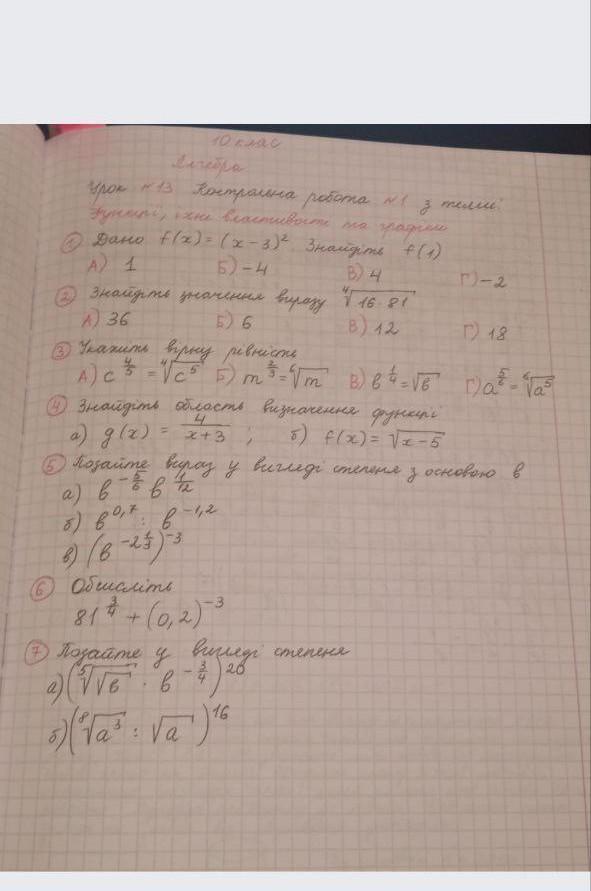 10 клас
Алгебра
Урок №13 Контрольна робота №1 з теми:
Функції, їхні властивості та графіки
① Дано f(x) = (x − 3)². Знайдіть f(1)
А) 1 Б) −4 В) 4 Г) −2
② Знайдіть значення виразу ⁴√(16·81)
А) 36 Б) 6 В) 12 Г) 18
③ Укажіть вірну рівність
А) c^(4/5) = ⁴√(c⁵) Б) m^(2/3) = ⁶√m В) в^(1/4) = √в Г) a^(5/6) = ⁶√(a⁵)
④ Знайдіть область визначення функції
а) g(x) = 4/(x+3) ; б) f(x) = √(x−5)
⑤ Подайте вираз у вигляді степеня з основою в
а) в^(−5/6) в^(1/12)
б) в^(0,7) : в^(−1,2)
в) (в^(−2 1/3))^(−3)
⑥ Обчисліть
81^(3/4) + (0,2)^(−3)
⑦ Подайте у вигляді степеня
а) (⁵√(√в) · в^(−3/4))^20
б) (⁸√(a³) : √a)^16